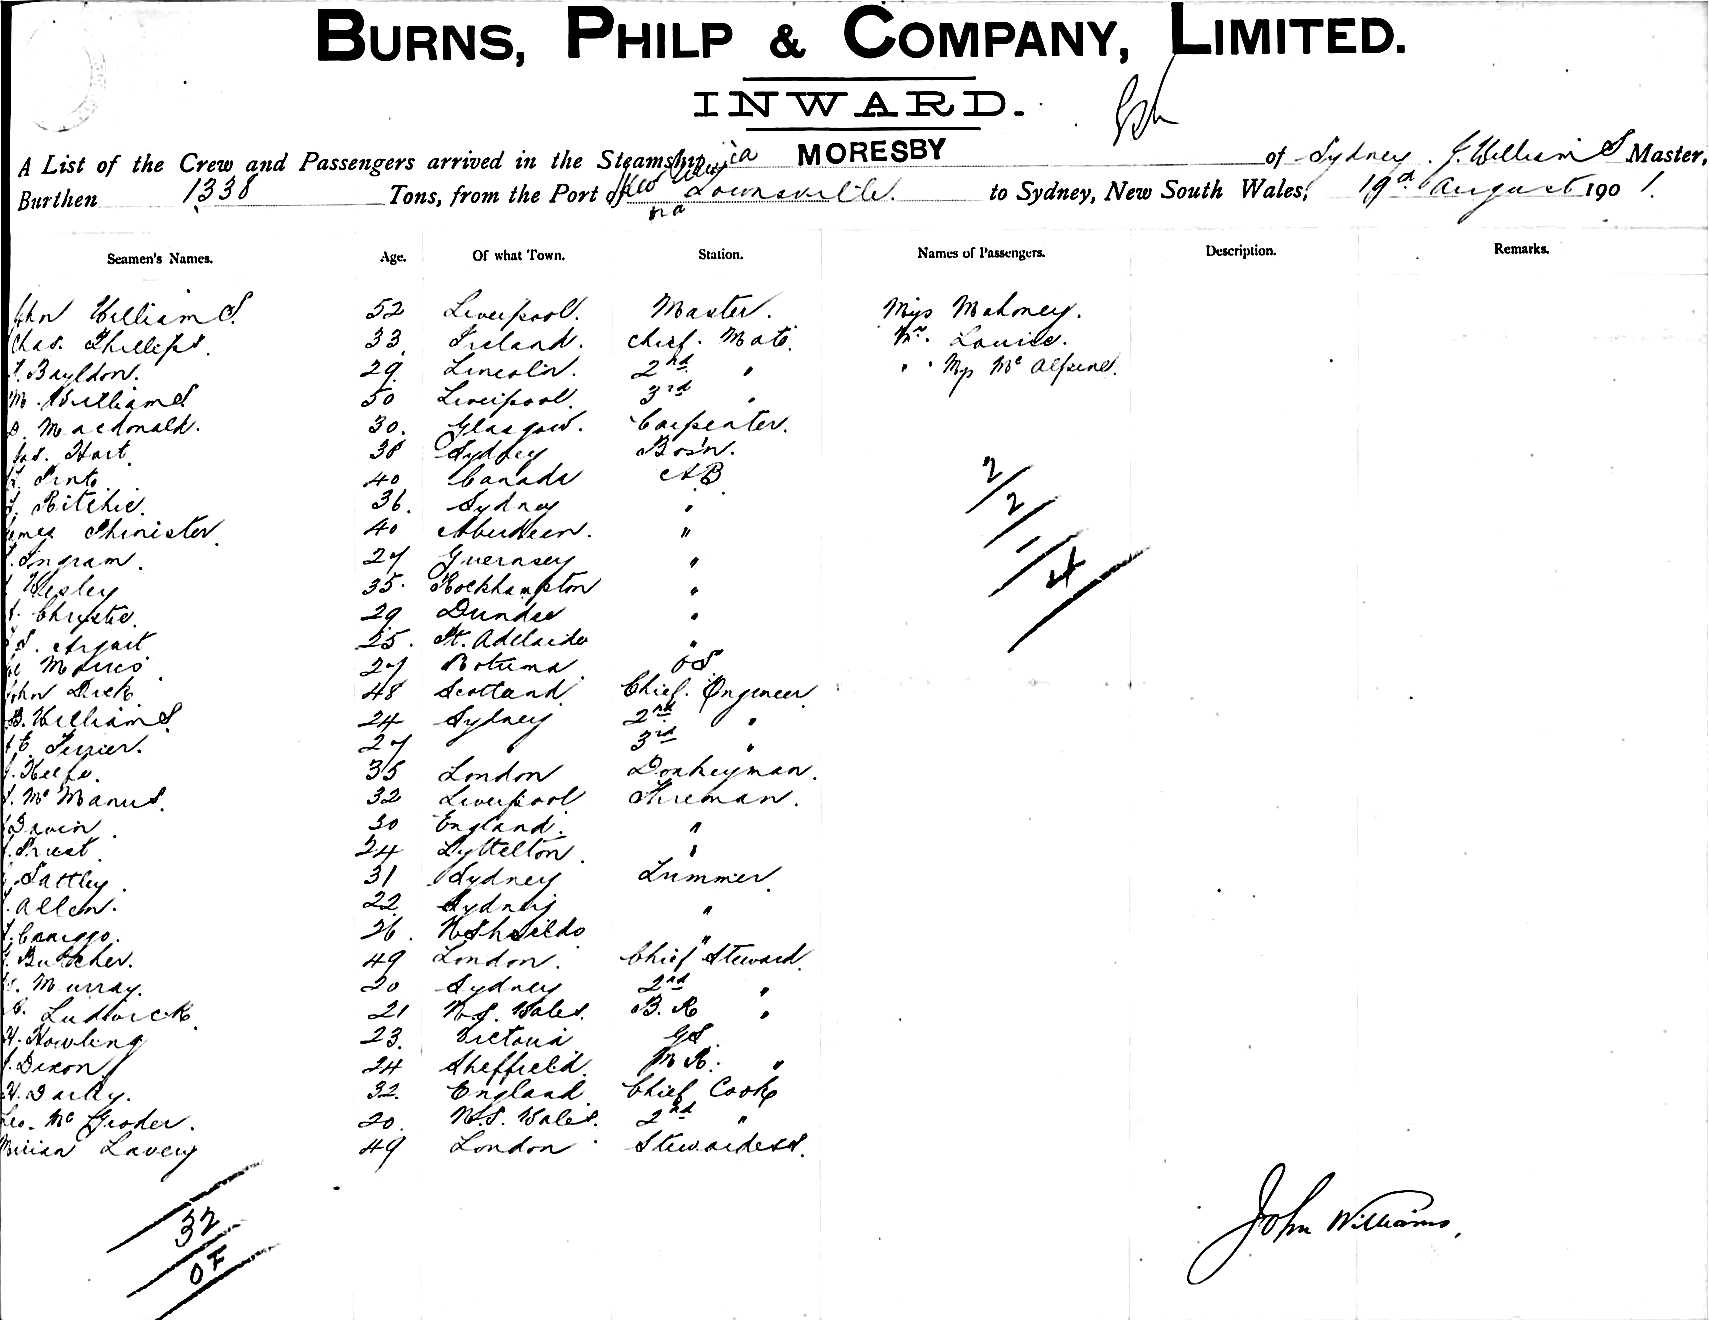 BURNS, PHILP & COMPANY, LIMITED.
INWARD.
A List of the Crew and Passengers arrived in the Steamship MORESBY of Sydney. J. Williams Master,
Burthen 1338 Tons, from the Port of Townsville. to Sydney, New South Wales, 19th August 1901.
via
Seamen's Names. Age. Of what Town. Station. Names of Passengers. Description. Remarks.
John Williams. 52 Liverpool. Master. Miss Mahoney.
Chas. Phillips. 33 Ireland. Chief. Mate. Mr. Louise.
Bayldon. 29 Lincoln. 2nd " " Miss McAlpine.
M. Williams 50 Liverpool. 3rd "
Macdonald. 30. Glasgow. Carpenter.
Jas. Hart. 38 Sydney Bos'n.
40 Canada AB
Ritchie. 36. Sydney "
James 40 Aberdeen. "
Ingram. 27 Guernsey "
35. Rockhampton "
Chrystie. 29 Dundee "
25. Pt. Adelaide "
Morris. 27 Rotuma OS
John Dick 48 Scotland. Chief. Engineer
B. Williams. 24 Sydney 2nd "
27 " 3rd "
Keefe. 35 London Donkeyman.
McManus. 32 Liverpool Fireman.
30 England. "
Priest. 24 Lyttelton. "
31 Sydney Trimmer.
Allen. 22 Sydney "
26. N Shields "
Butcher. 49 London. Chief Steward.
Murray. 20 Sydney 2nd "
Ludwick 21 N.S. Wales. B.R "
H. Howling 23. Victoria GS.
Dixon 24 Sheffield. M R. "
H. Darby. 32. England Chief Cook
Geo. McGroder. 20. N.S. Wales. 2nd "
Lavery 49 London Stewardess.
2/2/1/4
32
John Williams.